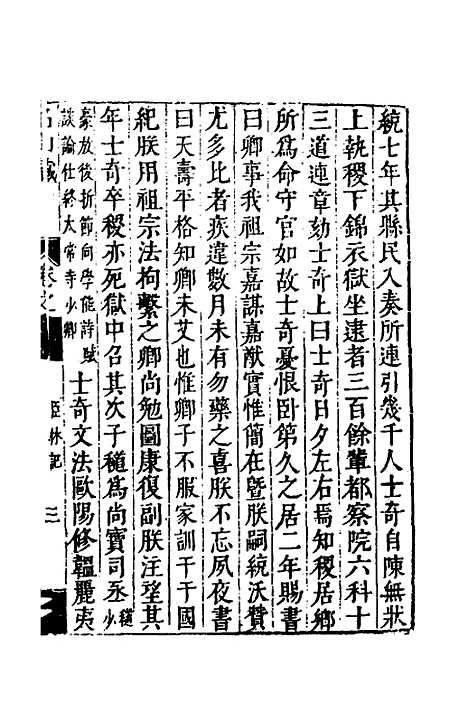 統七年其縣民入奏所連引幾千人士奇自陳無狀
上執稷下錦衣獄坐逮者三百餘輩都察院六科十
三道連章劾士奇上曰士奇日夕左右焉知稷居鄉
所為命守官如故士奇憂恨卧第久之居二年賜書
曰卿事我祖宗嘉謀嘉猷實惟簡在曁朕嗣統沃贊
尤多比者疾違數月未有勿藥之喜朕不忘夙夜書
曰天壽平格知卿未艾也惟卿子不服家訓干于國
紀朕用祖宗法拘繫之卿尚勉圖康復副朕汪望其
年士奇卒稷亦死獄中召其次子穜為尚寶司丞穜少
豪放後折節向學能詩賦談論仕終太常寺少卿士奇文法歐陽修韞麗夷
臣林記
三